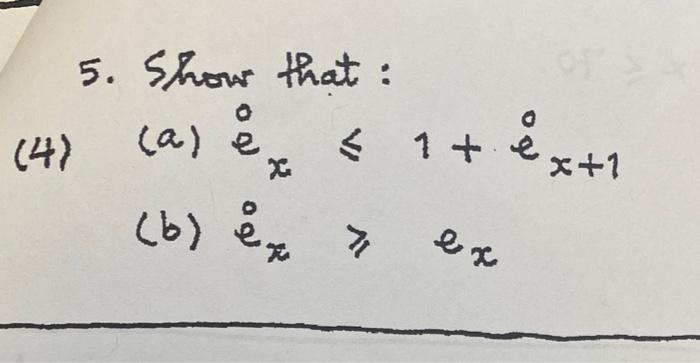 5. Show that :
(4) (a) e̊ₓ ≤ 1 + e̊ₓ₊₁
(b) e̊ₓ ≥ eₓ